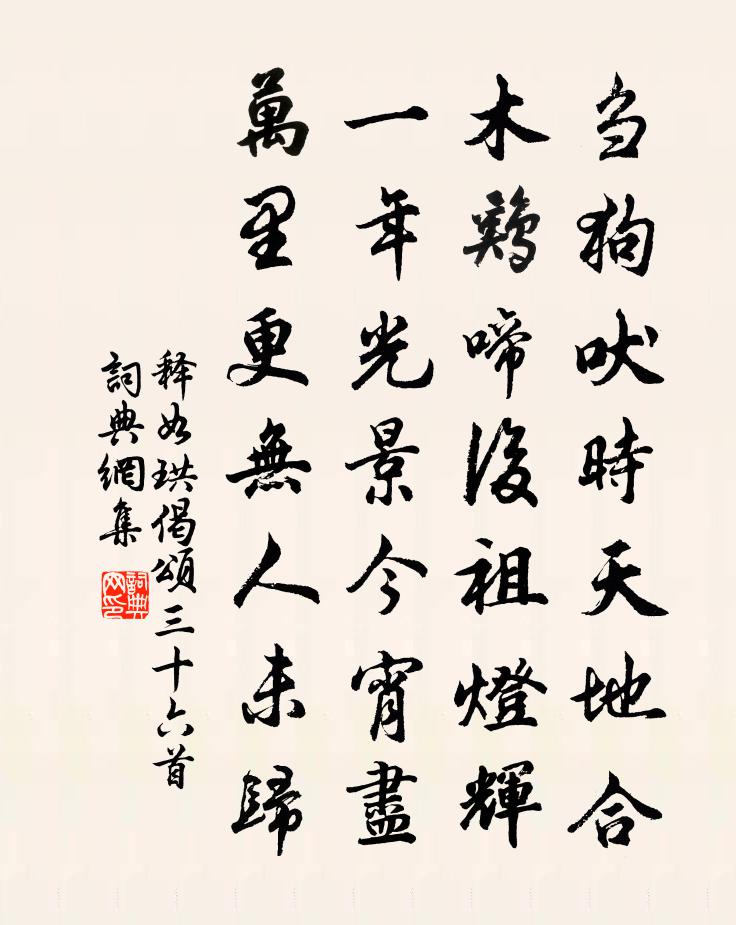 芻狗吠時天地合
木鷄啼後祖燈輝
一年光景今宵盡
萬里更無人未歸
释如珙偈頌三十六首
詞典網集
詞典网印